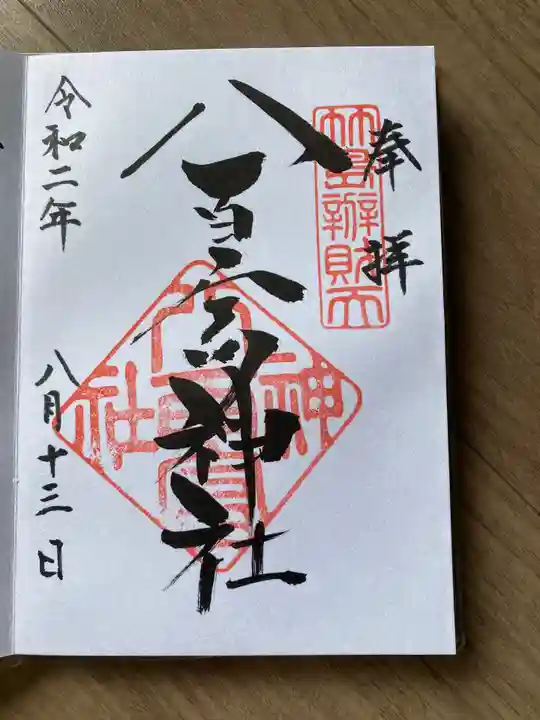 奉拝
竹島辨財天
八百富神社
八百富神社
令和二年 八月十三日